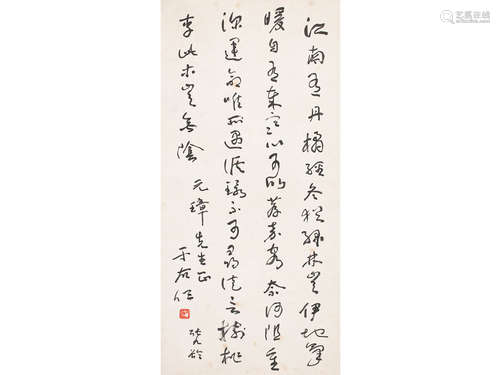 江南有丹橘經冬猶綠林豈伊地氣
暖自有歲寒心可以荐嘉客奈何阻重
深運命唯所遇循環不可尋徒言樹桃
李此木豈無陰
元璋先生正
于右任
艺狐在线